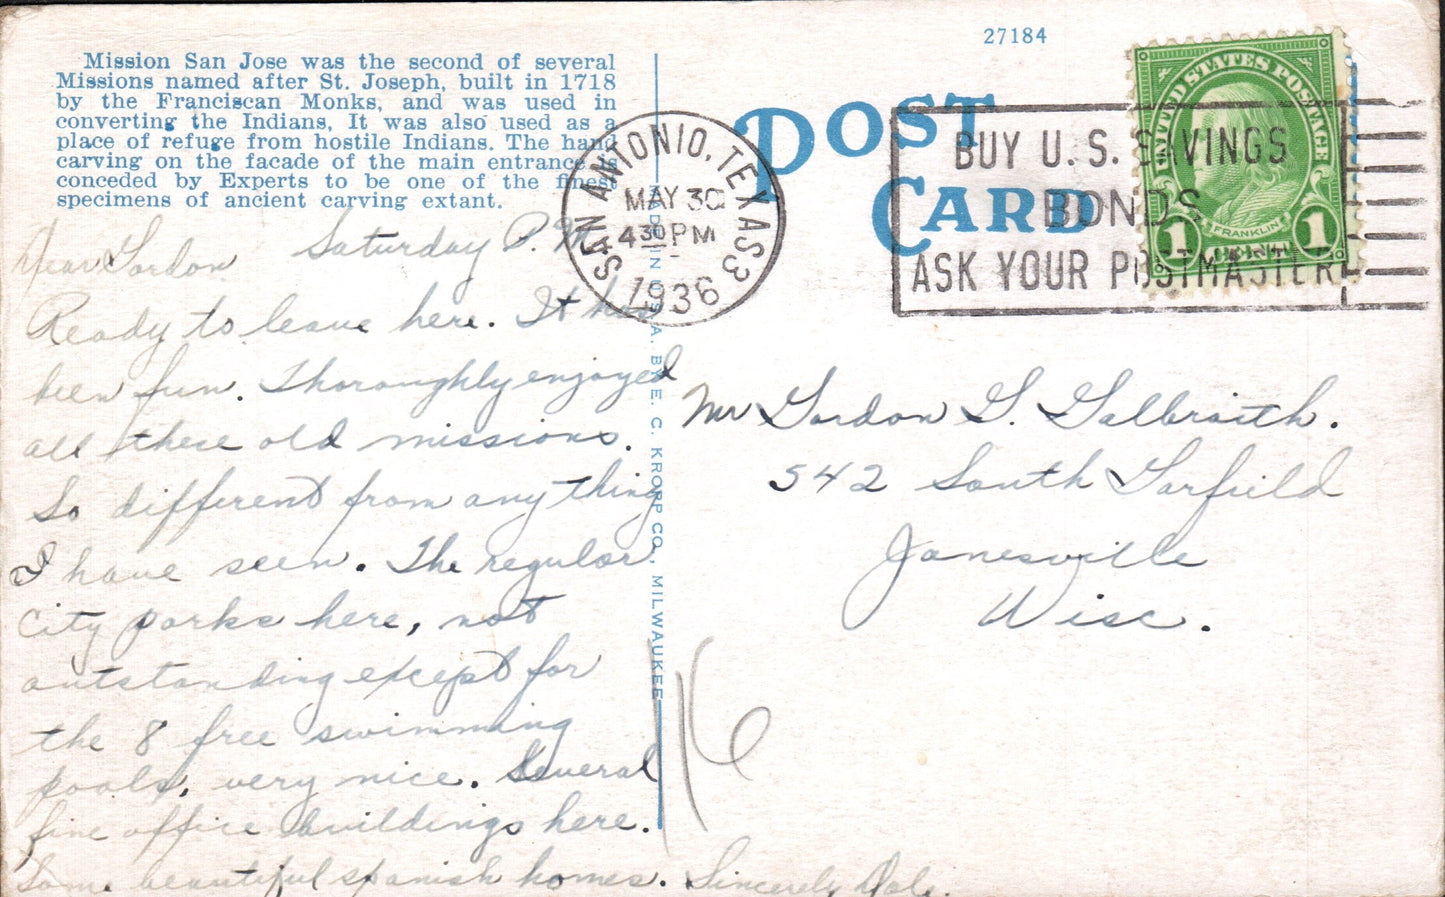 27184
Mission San Jose was the second of several
Missions named after St. Joseph, built in 1718
by the Franciscan Monks, and was used in
converting the Indians, It was also used as a
place of refuge from hostile Indians. The hand
carving on the facade of the main entrance is
conceded by Experts to be one of the finest
specimens of ancient carving extant.
POST
CARD
SAN ANTONIO, TEXAS 3
MAY 30
4 30 PM
1936
BUY U. S. SAVINGS
BONDS
ASK YOUR POSTMASTER
UNITED STATES POSTAGE
FRANKLIN
1 CENT 1
Saturday P. M.
Dear Gordon
Ready to leave here. It has
been fun. Thoroughly enjoyed
all these old missions.
So different from anything
I have seen. The regular
City parks here, not
outstanding except for
the 8 free swimming
pools, very nice. Several
fine office buildings here.
Some beautiful spanish homes. Sincerely
Mr Gordon G. Galbraith.
542 South Garfield
Janesville
Wisc.
IN U.S.A. BY E. C. KROPP CO., MILWAUKEE
16